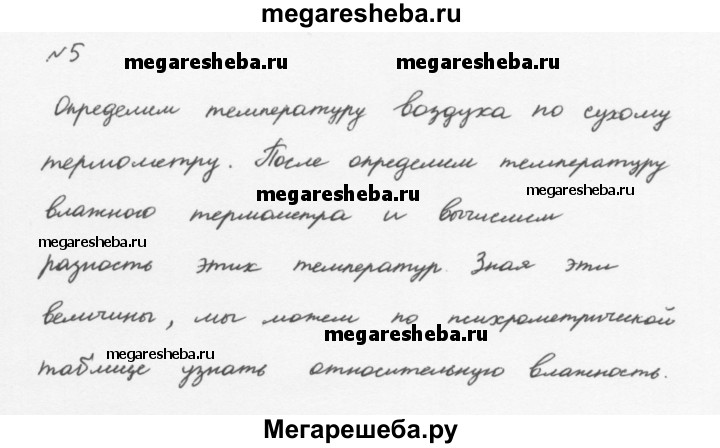 megaresheba.ru
№5
megaresheba.ru megaresheba.ru
Определим температуру воздуха по сухому
термометру. После определим температуру
megaresheba.ru megaresheba.ru
влажного термометра и вычислим
megaresheba.ru
разность этих температур. Зная эти
величины, мы можем по психрометрической
megaresheba.ru
megaresheba.ru
таблице узнать относительную влажность.
Мегарешеба.ру